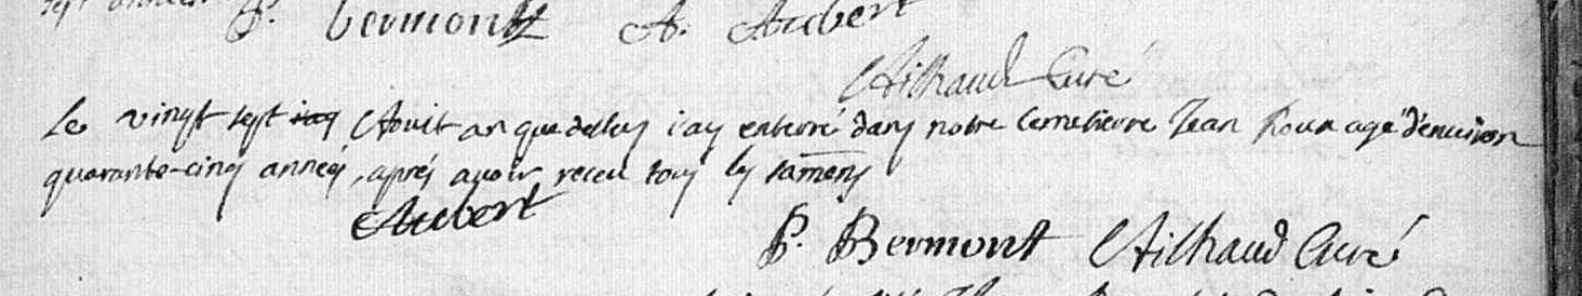 P. Bermont A. Aubert
Ailhaud Curé
Le vingt sept Aoust an que dessus i'ay enterré dans notre Cemetierre Jean Roux agé d'enuiron
quarante-cinq années, aprés auoir receu tous les samens
Aubert
P. Bermont Ailhaud Curé